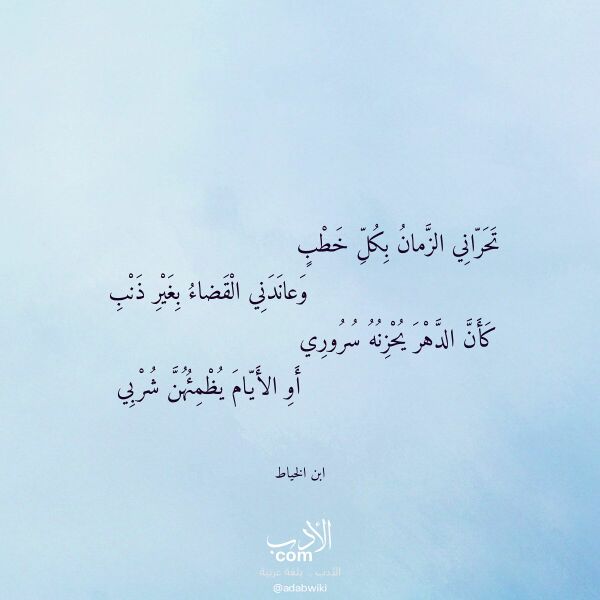 تَحَرّانِي الزَّمانُ بِكُلِّ خَطْبٍ
وَعانَدَنِي الْقَضاءُ بِغَيْرِ ذَنْبِ
كَأَنَّ الدَّهْرَ يُحْزِنُهُ سُرُورِي
أَوِ الأَيّامَ يُظْمِئُهُنَّ شُرْبِي
ابن الخياط
الأدب
com
الأدب .. بلغة عربية
@adabwiki